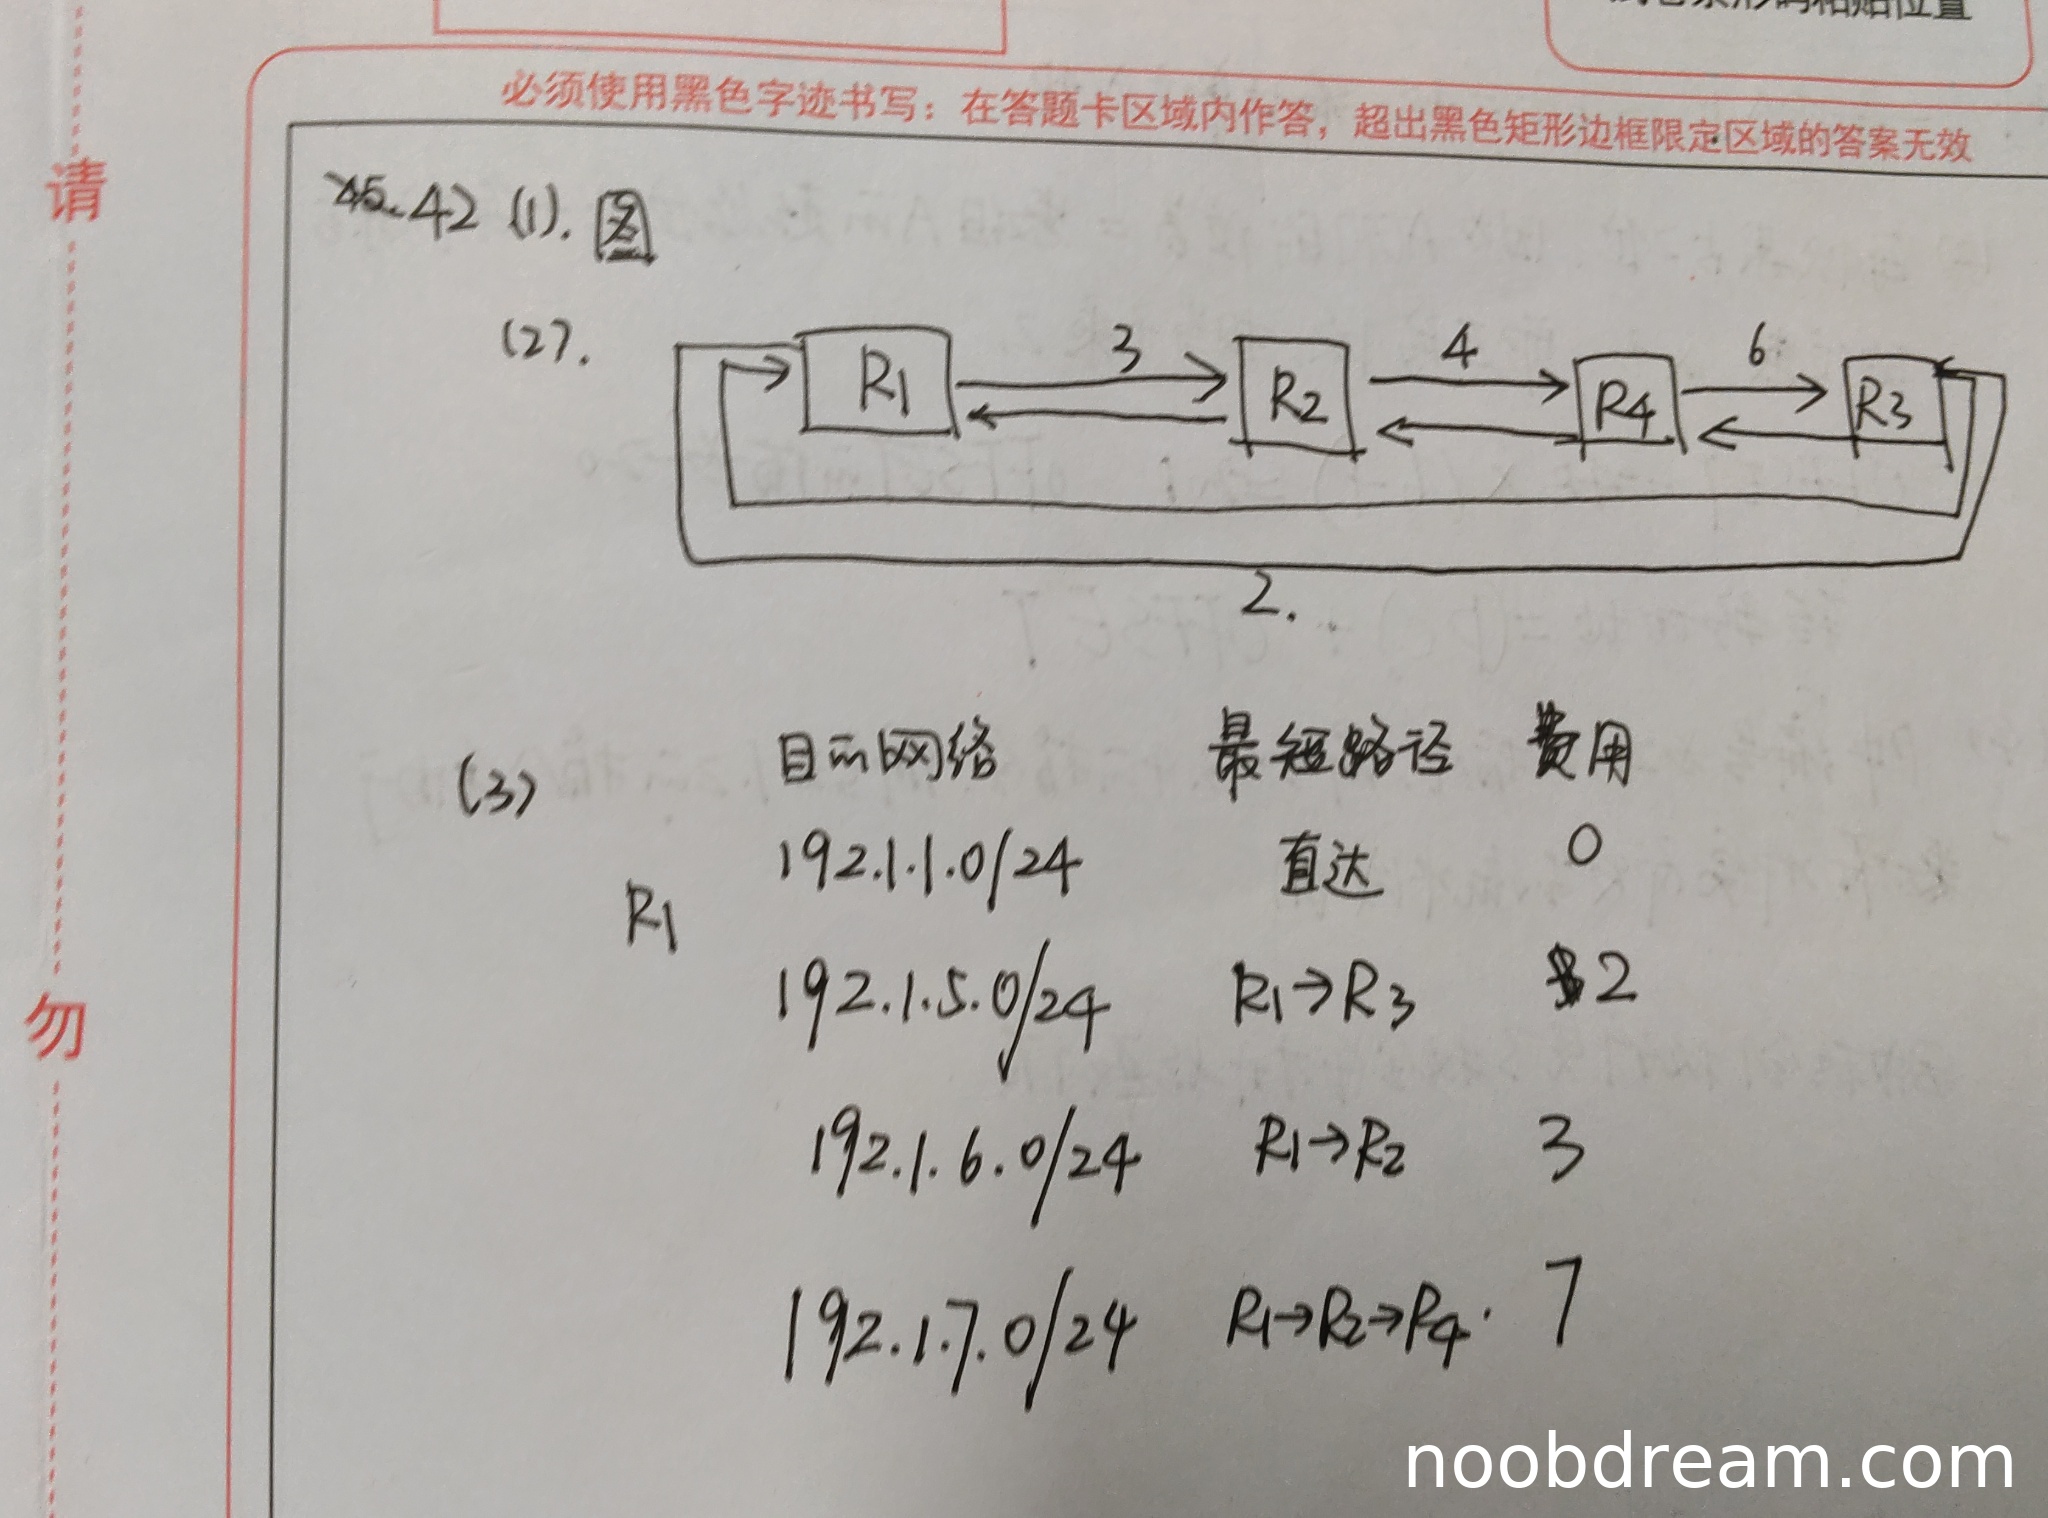 试卷条形码粘贴位置
必须使用黑色字迹书写：在答题卡区域内作答，超出黑色矩形边框限定区域的答案无效
请
42 (1). 图
(2). R1 3 R2 4 R4 6 R3
2.
(3) 目的网络 最短路径 费用
192.1.1.0/24 直达 0
R1
192.1.5.0/24 R1→R3 2
勿
192.1.6.0/24 R1→R2 3
192.1.7.0/24 R1→R2→R4. 7
noobdream.com